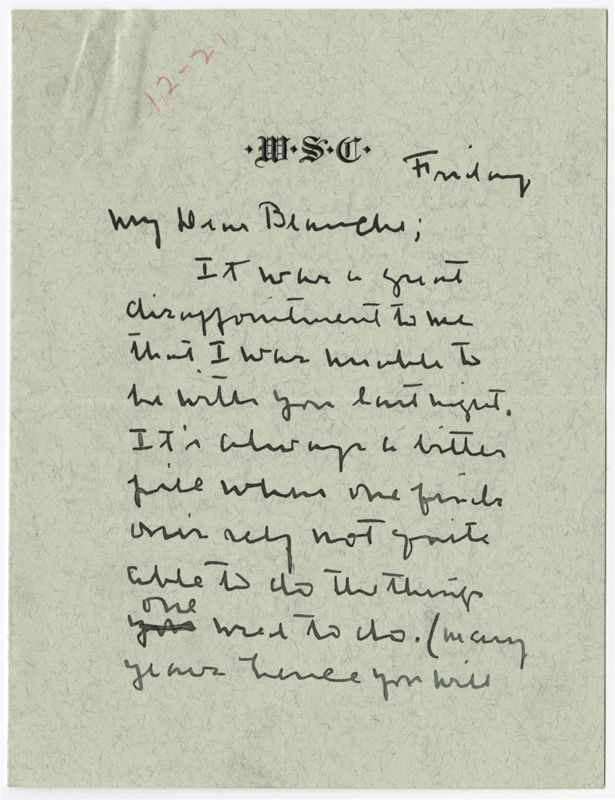 12-21
·W·S·C·
Friday
My Dear Blanche;
It was a great
disappointment to me
that I was unable to
be with you last night.
It's always a bitter
pill when one finds
one's self not quite
able to do the things
one
you used to do. (many
years hence you will